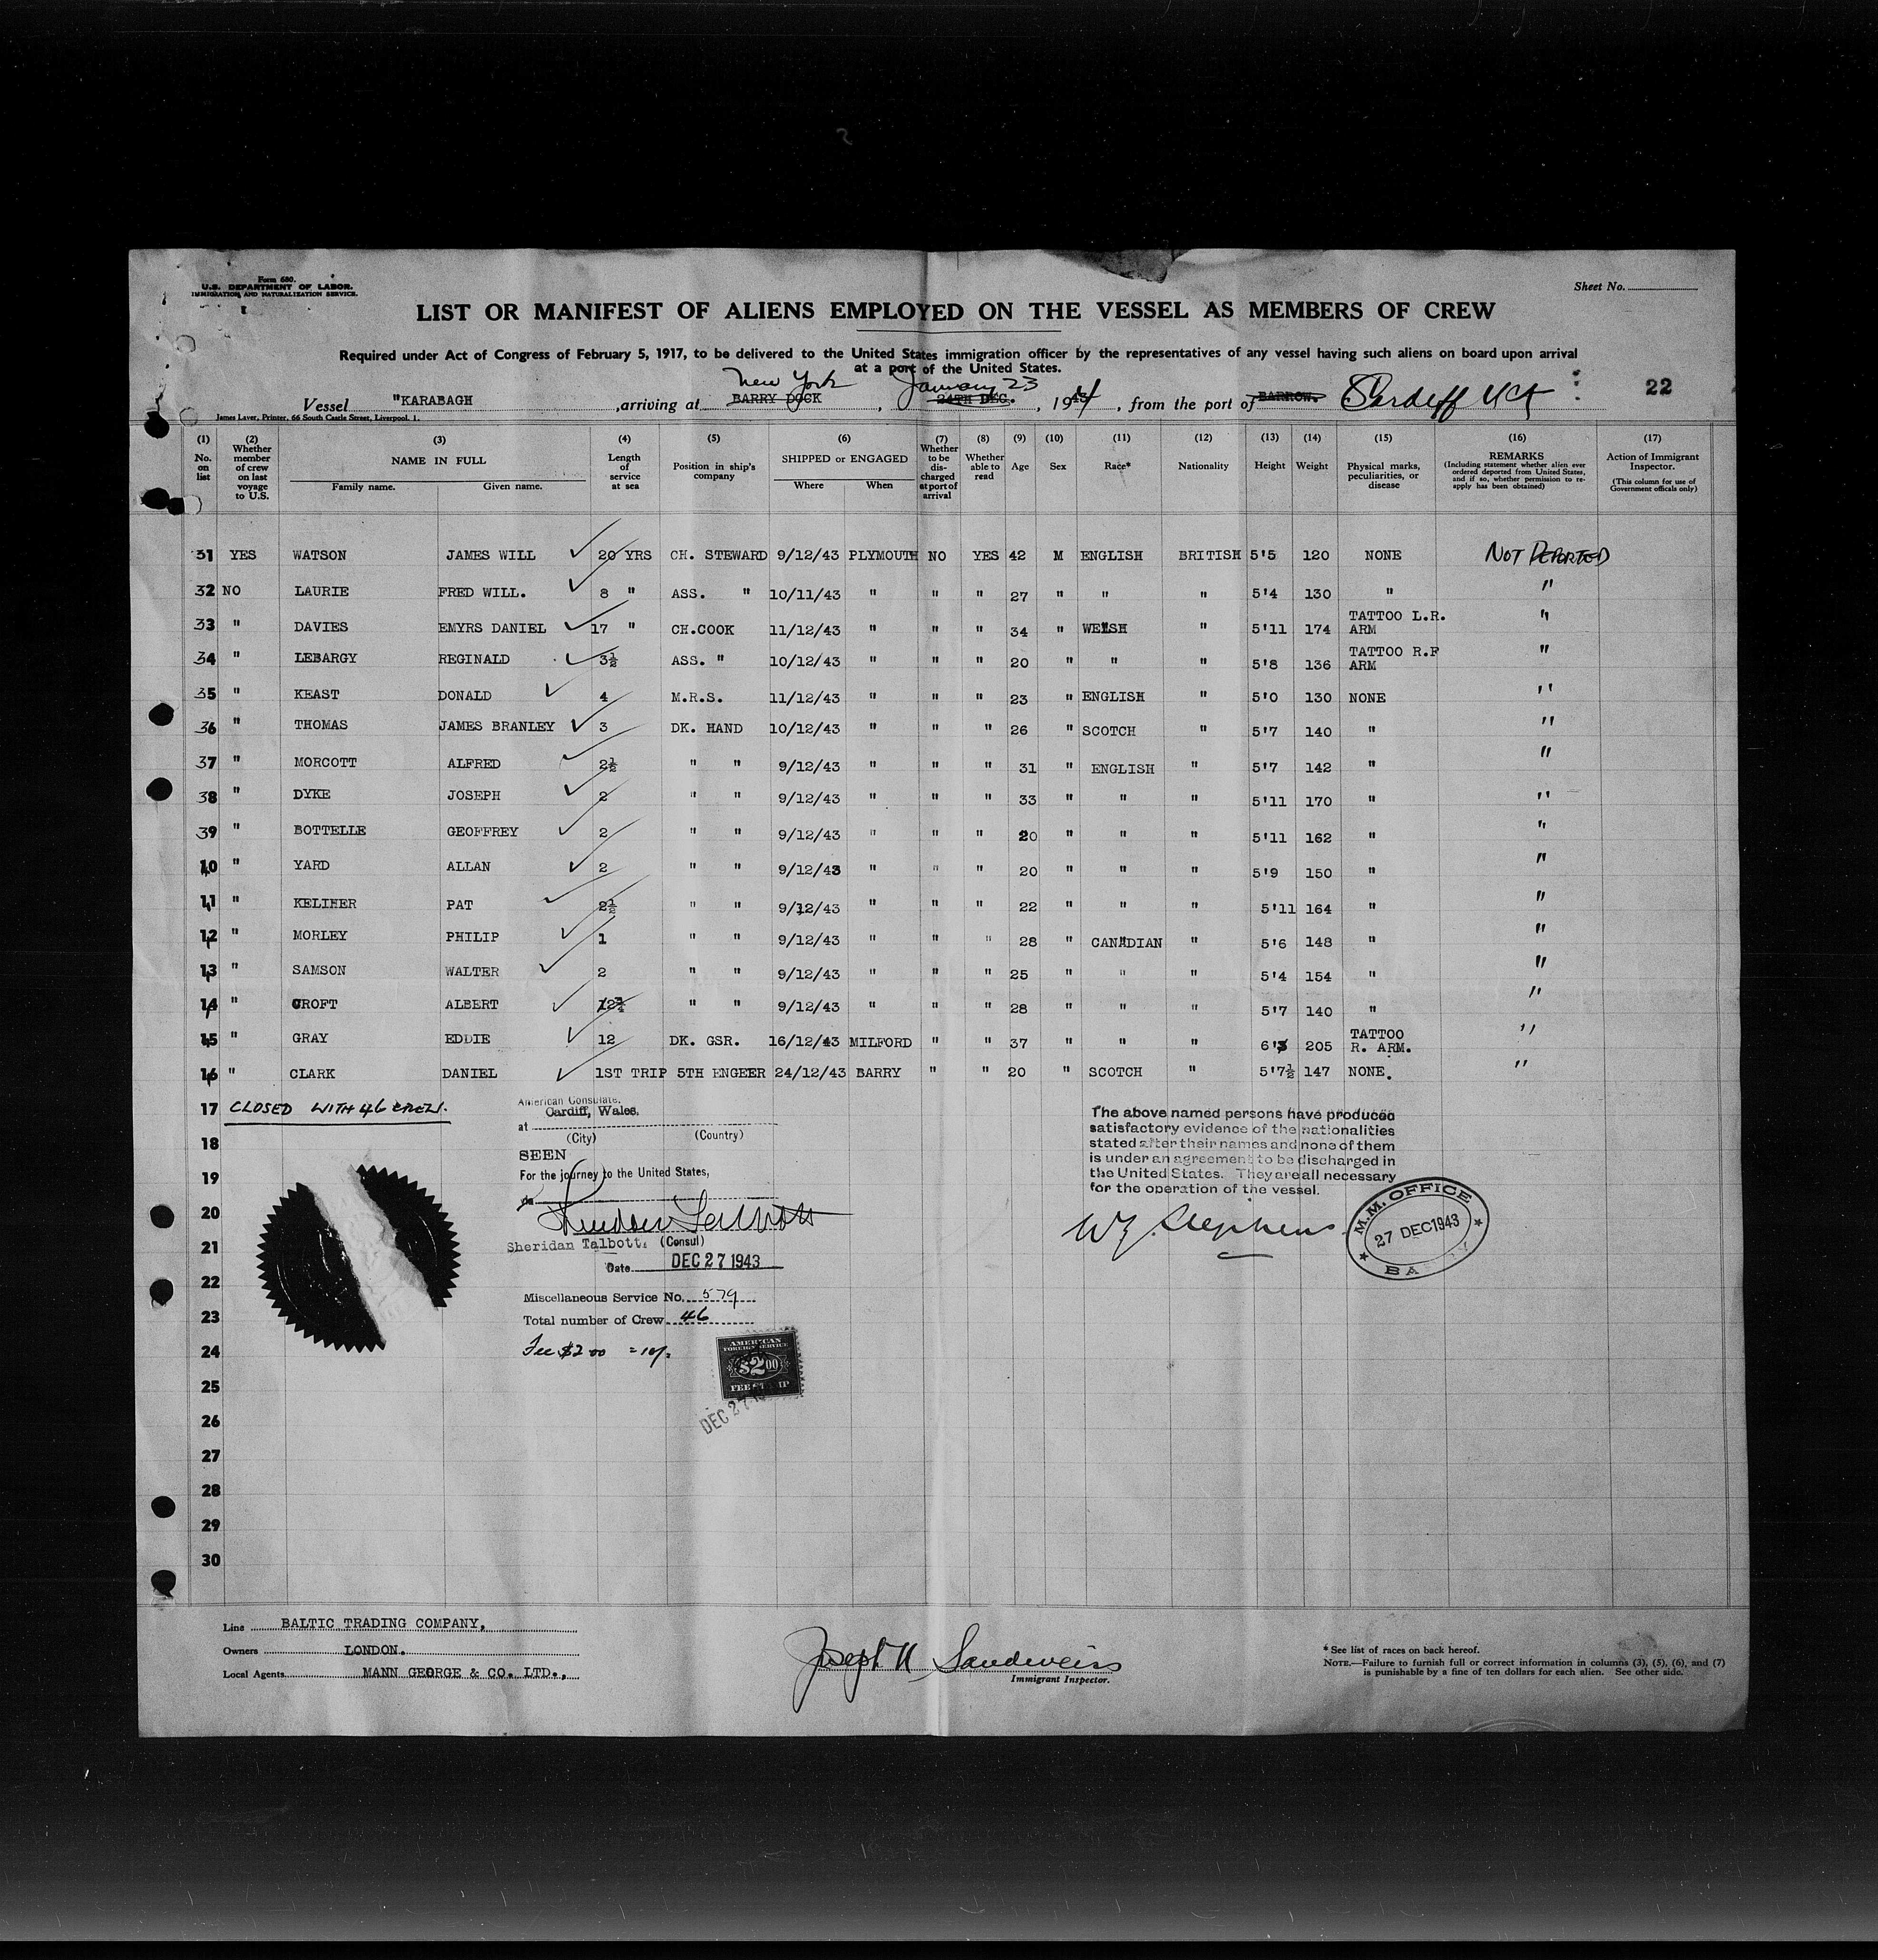 Form 680.
U.S. DEPARTMENT OF LABOR.
IMMIGRATION AND NATURALIZATION SERVICE.
Sheet No.
LIST OR MANIFEST OF ALIENS EMPLOYED ON THE VESSEL AS MEMBERS OF CREW
Required under Act of Congress of February 5, 1917, to be delivered to the United States immigration officer by the representatives of any vessel having such aliens on board upon arrival
at a port of the United States.
New York January 23
Vessel "KARABAGH ,arriving at BARRY DOCK , 24TH DEC. , 1944 , from the port of BARROW. Cardiff 22
James Laver, Printer, 66 South Castle Street, Liverpool. 1.
(1) No. on list (2) Whether member of crew on last voyage to U.S. (3) NAME IN FULL Family name. Given name. (4) Length of service at sea (5) Position in ship's company (6) SHIPPED or ENGAGED Where When (7) Whether to be discharged at port of arrival (8) Whether able to read (9) Age (10) Sex (11) Race* (12) Nationality (13) Height (14) Weight (15) Physical marks, peculiarities, or disease (16) REMARKS (Including statement whether alien ever ordered deported from United States, and if so, whether permission to re-apply has been obtained) (17) Action of Immigrant Inspector. (This column for use of Government officials only)
31 YES WATSON JAMES WILL 20 YRS CH. STEWARD 9/12/43 PLYMOUTH NO YES 42 M ENGLISH BRITISH 5'5 120 NONE NOT DEPORTED
32 NO LAURIE FRED WILL. 8 " ASS. " 10/11/43 " " " 27 " " " 5'4 130 " "
33 " DAVIES EMYRS DANIEL 17 " CH.COOK 11/12/43 " " " 34 " WELSH " 5'11 174 TATTOO L.R. ARM "
34 " LEBARGY REGINALD 3½ ASS. " 10/12/43 " " " 20 " " " 5'8 136 TATTOO R.F ARM "
35 " KEAST DONALD 4 M.R.S. 11/12/43 " " " 23 " ENGLISH " 5'0 130 NONE "
36 " THOMAS JAMES BRANLEY 3 DK. HAND 10/12/43 " " " 26 " SCOTCH " 5'7 140 " "
37 " MORCOTT ALFRED 2½ " " 9/12/43 " " " 31 " ENGLISH " 5'7 142 " "
38 " DYKE JOSEPH 2 " " 9/12/43 " " " 33 " " " 5'11 170 " "
39 " BOTTELLE GEOFFREY 2 " " 9/12/43 " " " 20 " " " 5'11 162 " "
40 " YARD ALLAN 2 " " 9/12/43 " " " 20 " " " 5'9 150 " "
41 " KELIHER PAT 2½ " " 9/12/43 " " " 22 " " " 5'11 164 " "
42 " MORLEY PHILIP 1 " " 9/12/43 " " " 28 " CANADIAN " 5'6 148 " "
43 " SAMSON WALTER 2 " " 9/12/43 " " " 25 " " " 5'4 154 " "
44 " CROFT ALBERT " " 9/12/43 " " " 28 " " " 5'7 140 " "
45 " GRAY EDDIE 12 DK. GSR. 16/12/43 MILFORD " " 37 " " " 6'3 205 TATTOO R. ARM. "
46 " CLARK DANIEL 1ST TRIP 5TH ENGEER 24/12/43 BARRY " " 20 " SCOTCH " 5'7½ 147 NONE. "
17 CLOSED WITH 46 CREW.
18
19
20
21
22
23
24
25
26
27
28
29
30
American Consulate.
Cardiff, Wales.
at
(City) (Country)
SEEN
For the journey to the United States,
via
Sheridan Talbott
Sheridan Talbott. (Consul)
Date DEC 27 1943
Miscellaneous Service No. 579
Total number of Crew 46
Fee $2.00 = 10/-
AMERICAN
FOREIGN SERVICE
$2.00
FEE STAMP
DEC 27
The above named persons have produced
satisfactory evidence of the nationalities
stated after their names and none of them
is under an agreement to be discharged in
the United States. They are all necessary
for the operation of the vessel.
Stephens
M.M. OFFICE
27 DEC 1943
BARRY
Line BALTIC TRADING COMPANY,
Owners LONDON.
Local Agents MANN GEORGE & CO. LTD.,
Joseph H Sandweiss
Immigrant Inspector.
* See list of races on back hereof.
NOTE.—Failure to furnish full or correct information in columns (3), (5), (6), and (7)
is punishable by a fine of ten dollars for each alien. See other side.